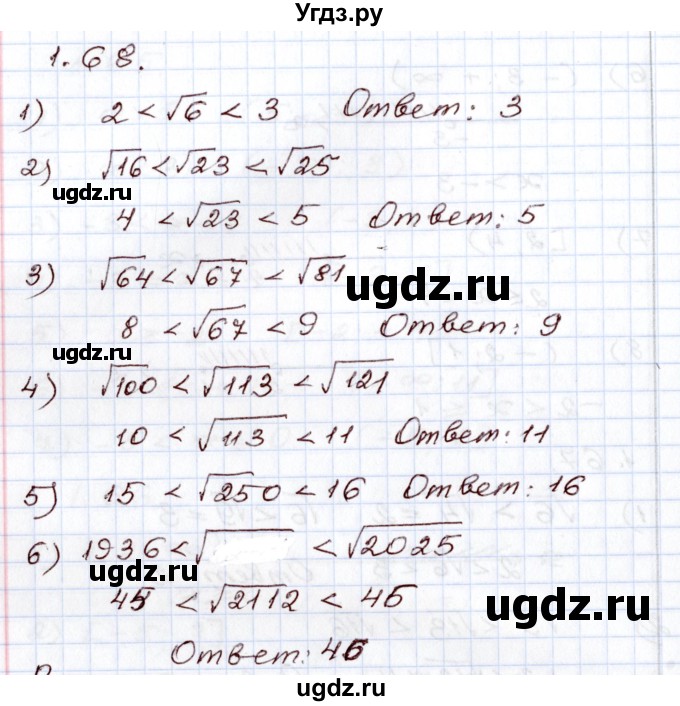 Угдз.ру
1.68.
1) 2 < √6 < 3 Ответ: 3
2) √16 < √23 < √25
ugdz.ru
4 < √23 < 5 Ответ: 5
3) √64 < √67 < √81
ugdz.ru
8 < √67 < 9 Ответ: 9
ugdz.ru
4) √100 < √113 < √121
10 < √113 < 11 Ответ: 11
5) 15 < √250 < 16 Ответ: 16
6) 1936 < √ < √2025
ugdz.ru
45 < √2112 < 46
Ответ: 46
ugdz.ru